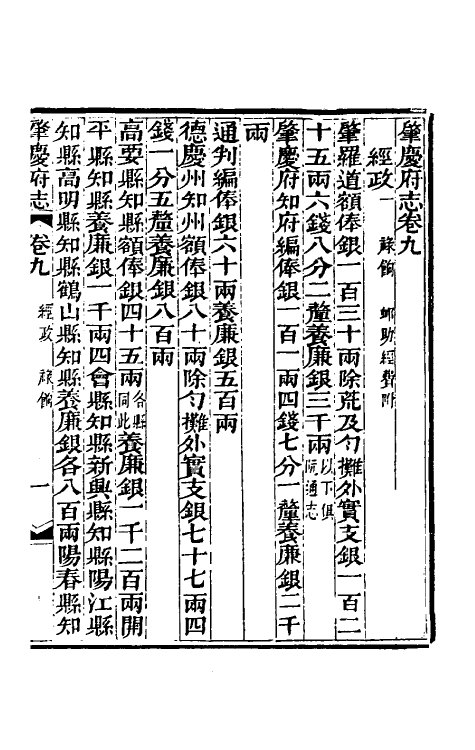 肇慶府志卷九
經政一 祿餉 鄉助經費附
肇羅道額俸銀一百三十兩除荒及勻攤外實支銀一百二
十五兩六錢八分二釐養廉銀三千兩以下俱阮通志
肇慶府知府編俸銀一百一兩四錢七分一釐養廉銀二千
兩
通判編俸銀六十兩養廉銀五百兩
德慶州知州額俸銀八十兩除勻攤外實支銀七十七兩四
錢一分五釐養廉銀八百兩
高要縣知縣額俸銀四十五兩各縣同此養廉銀一千二百兩開
平縣知縣養廉銀一千兩四會縣知縣新興縣知縣陽江縣
知縣高明縣知縣鶴山縣知縣養廉銀各八百兩陽春縣知
肇慶府志 卷九 經政 祿餉 一